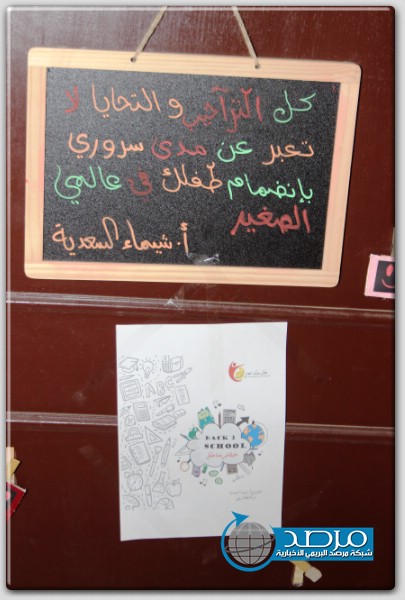 كل التراحيب و التحايا لا
تعبر عن مدى سروري
بإنضمام طفلك في عالمي
الصغير
أ. شيماء السعدية
BACK 2
SCHOOL
مرصد
شبكة مرصد البريمي الأخبارية